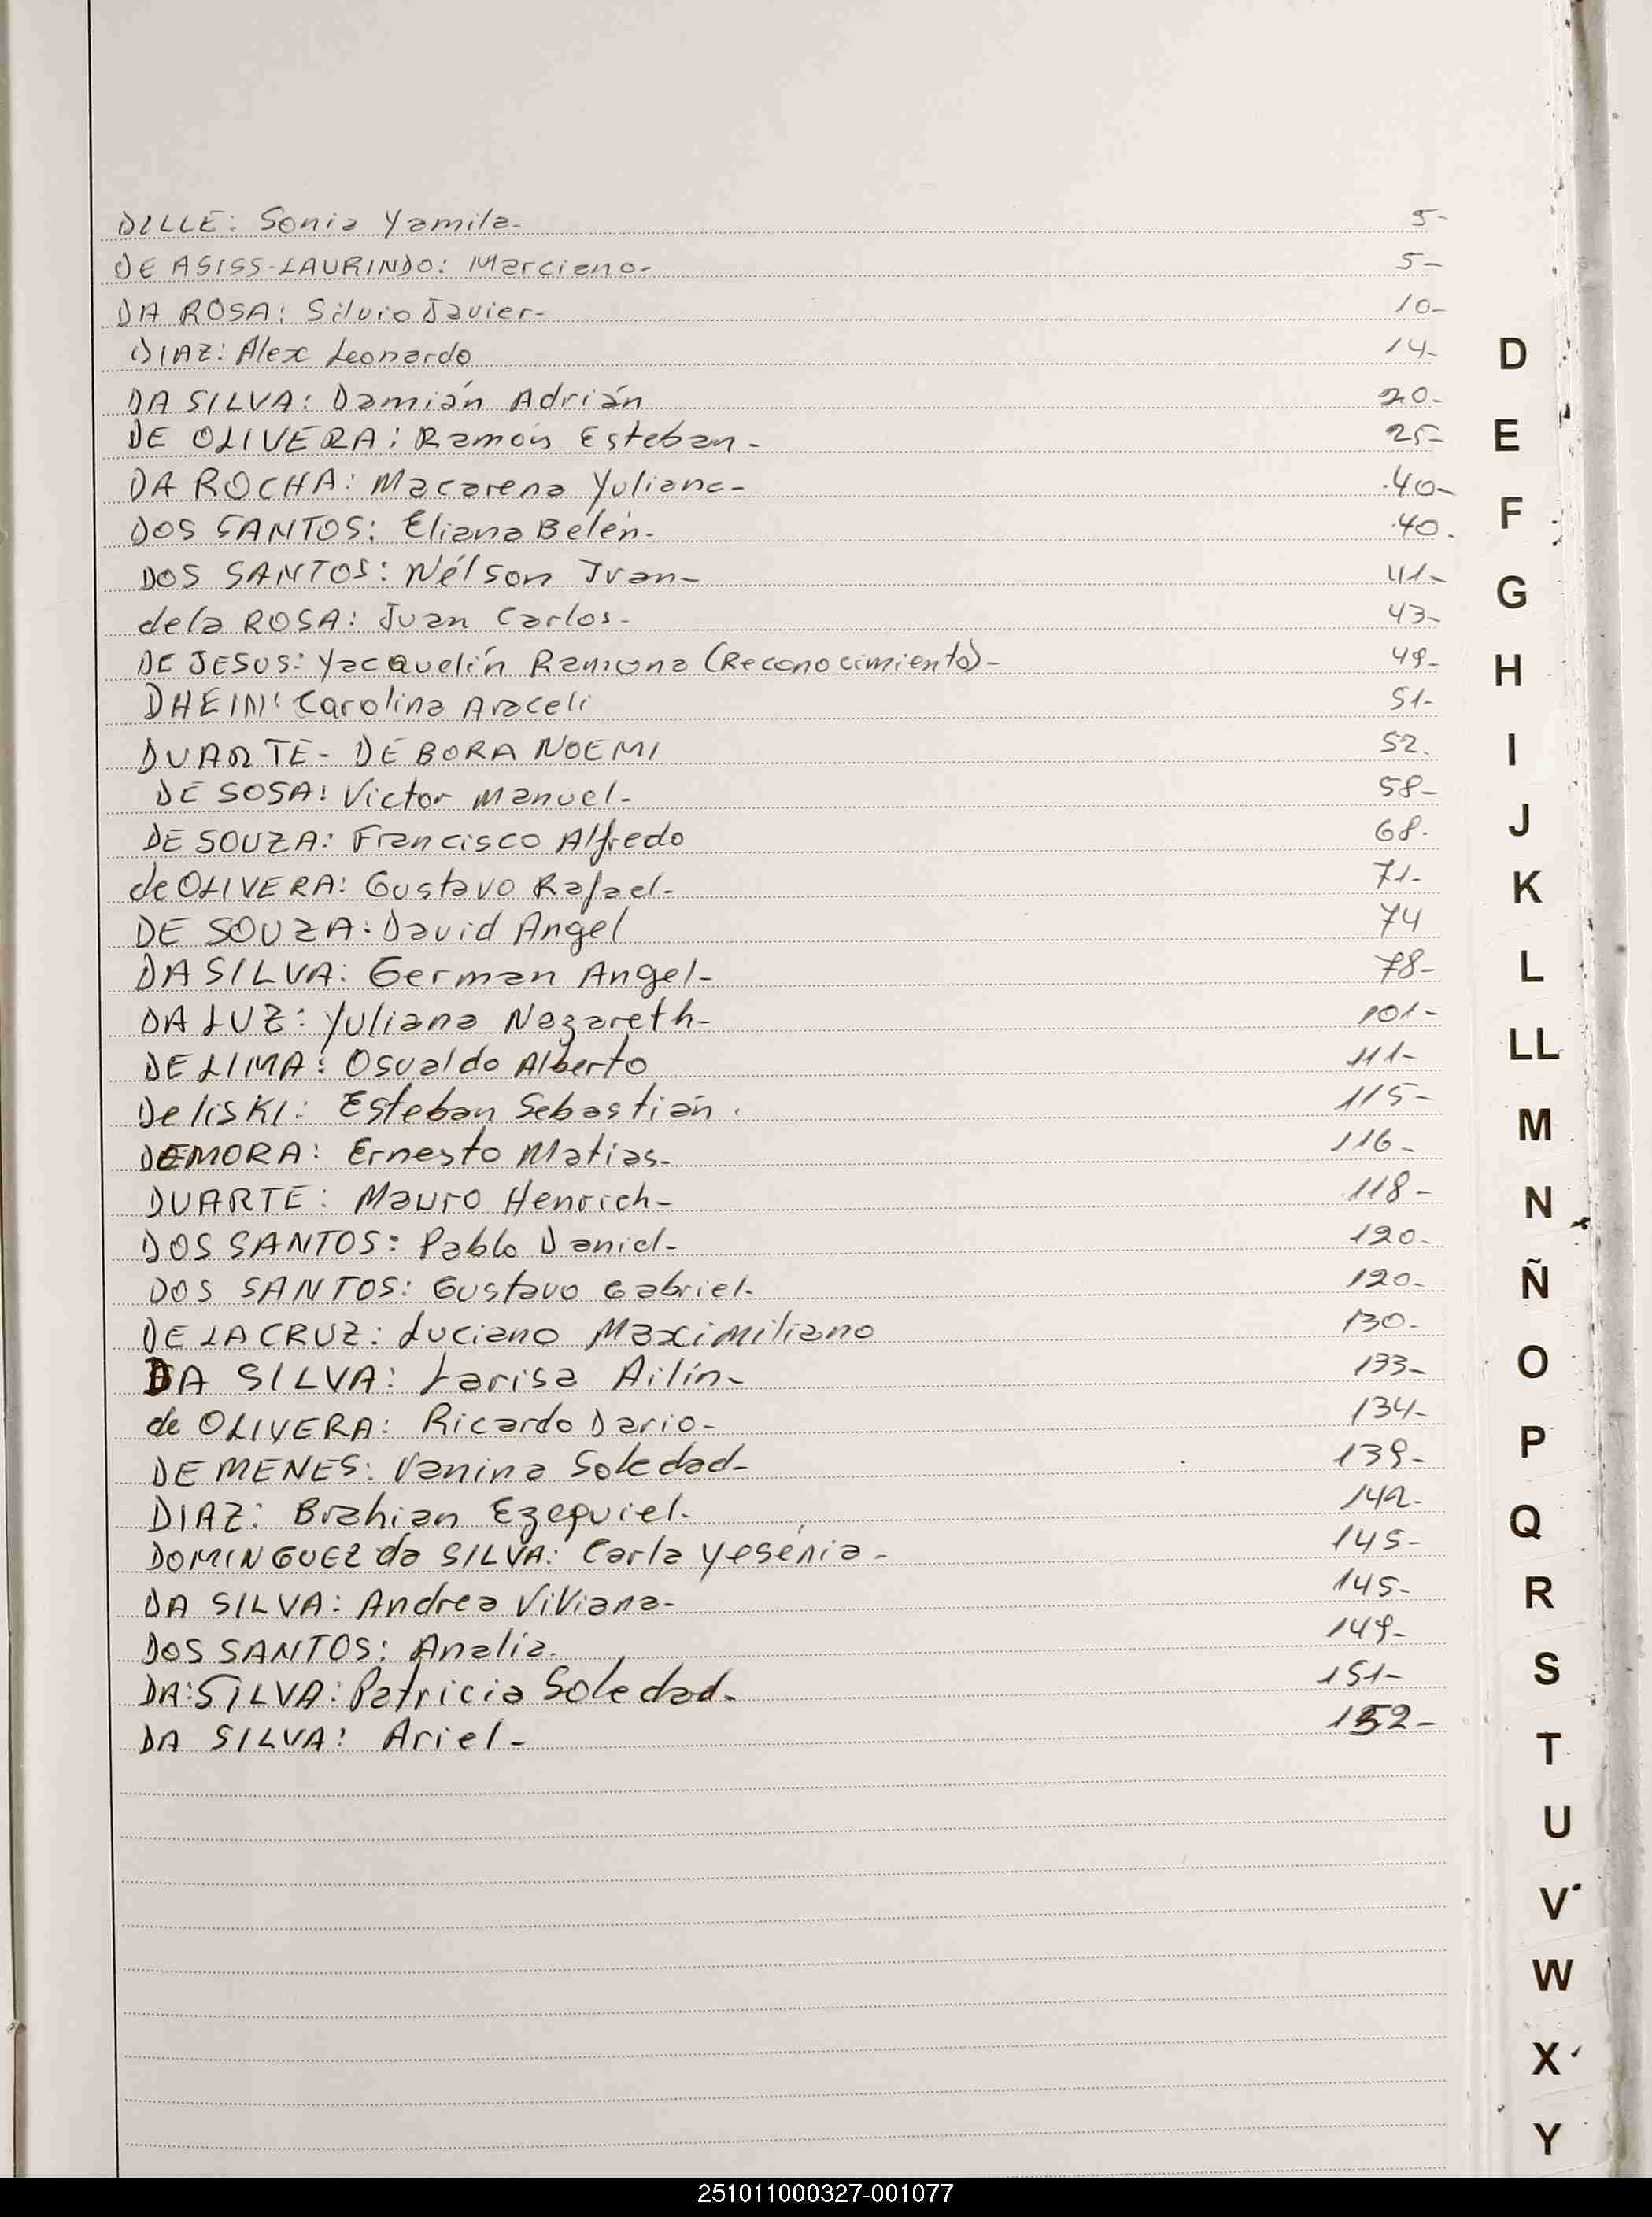 DILLE: Sonia Yamila- 5-
DE ASISS-LAURINDO: Marciano- 5-
DA ROSA: Silvio Javier- 10-
DIAZ: Alex Leonardo 14-
DA SILVA: Damián Adrián 20-
DE OLIVERA: Ramón Esteban- 25-
DA ROCHA: Macarena Yuliana- 40-
DOS SANTOS: Eliana Belén- 40.
DOS SANTOS: Nélson Ivan- 41-
de la ROSA: Juan Carlos- 43-
DE JESUS: Yacquelín Ramona (Reconocimiento)- 49-
DHEIN: Carolina Araceli 51-
DUARTE- DEBORA NOEMI 52.
DE SOSA: Victor Manuel- 58-
DE SOUZA: Francisco Alfredo 68.
de OLIVERA: Gustavo Rafael- 71-
DE SOUZA: David Angel 74
DA SILVA: German Angel- 78-
DA LUZ: Yuliana Nazareth- 101-
DE LIMA: Osvaldo Alberto 111-
DeliSKI: Esteban Sebastián. 115-
DEMORA: Ernesto Matias- 116-
DUARTE: Mauro Henrich- 118-
DOS SANTOS: Pablo Daniel- 120-
DOS SANTOS: Gustavo Gabriel- 120-
DE LA CRUZ: Luciano Maximiliano 130-
DA SILVA: Larisa Ailín- 133-
de OLIVERA: Ricardo Dario- 134-
DE MENES: Vanina Soledad- 139-
DIAZ: Brahian Ezequiel- 142-
DOMINGUEZ da SILVA: Carla Yesénia- 145-
DA SILVA: Andrea Viviana- 145-
DOS SANTOS: Analia- 149-
DA SILVA: Patricia Soledad- 151-
DA SILVA: Ariel- 152-
D
E
F
G
H
I
J
K
L
LL
M
N
Ñ
O
P
Q
R
S
T
U
V
W
X
Y
251011000327-001077